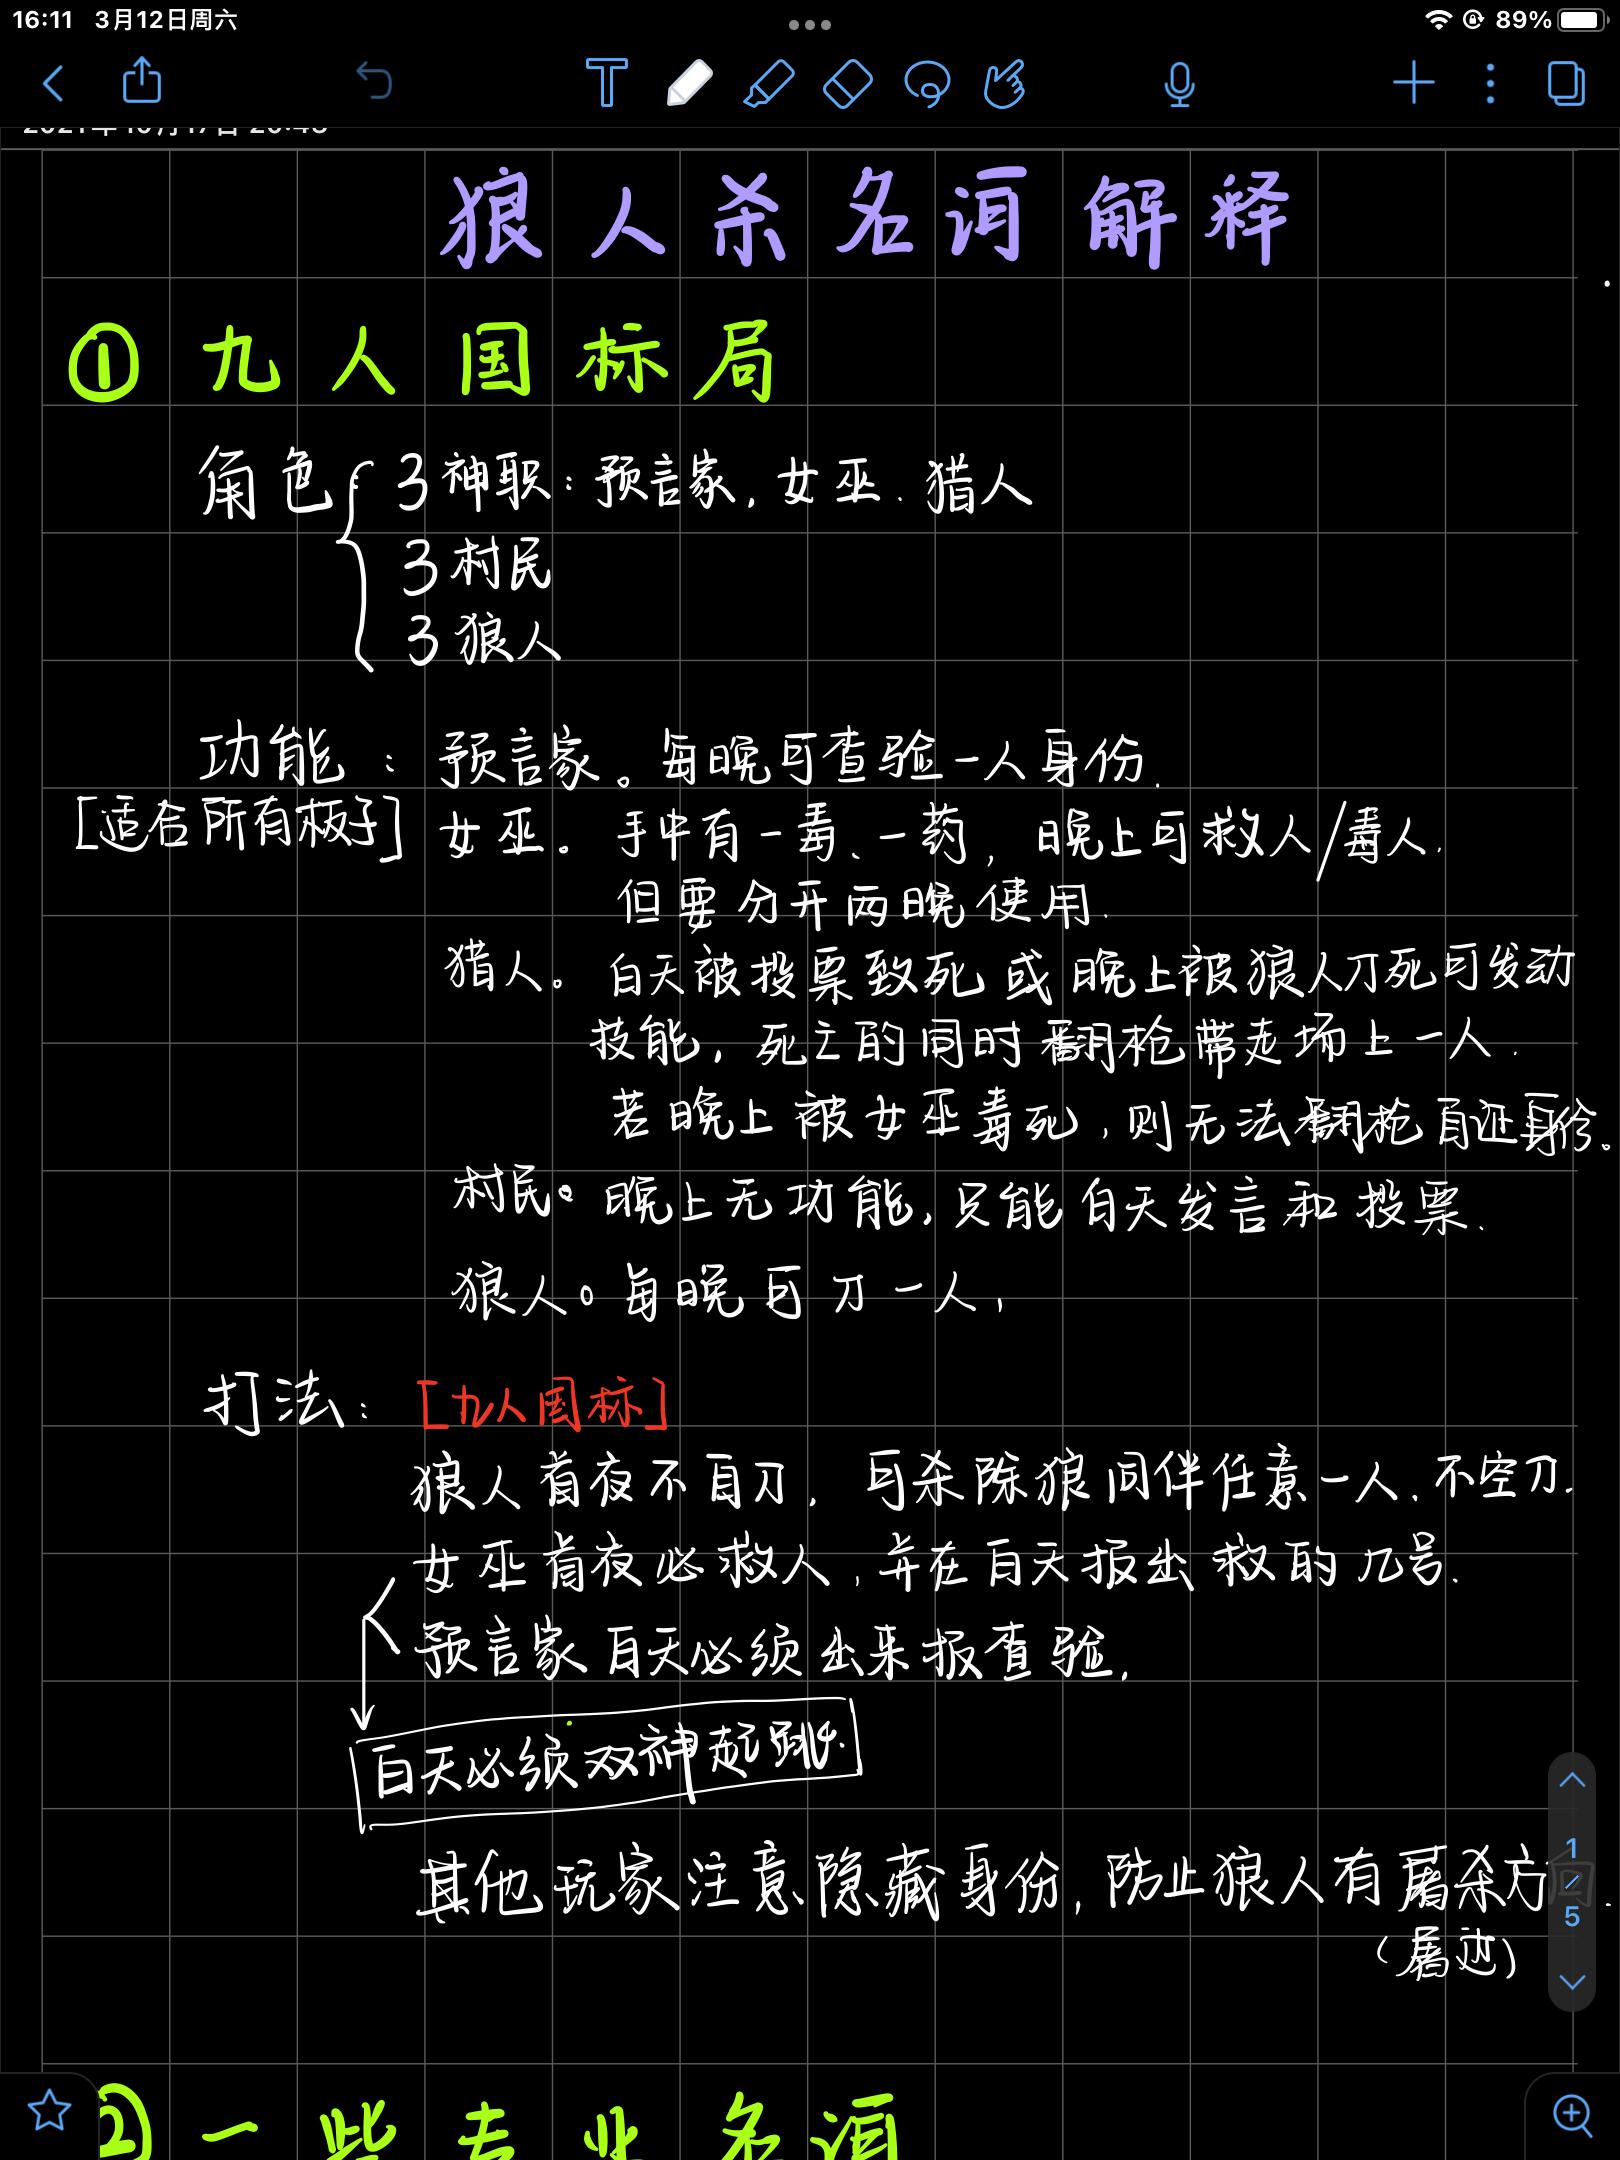 16:11 3月12日周六
89%
2021年10月17日 20:48
狼人杀名词解释
① 九人国标局
角色 { 3神职：预言家，女巫、猎人
3村民
3狼人
功能： 预言家。每晚可查验一人身份.
[适合所有板子] 女巫。手中有一毒、一药，晚上可救人/毒人.
但要分开两晚使用.
猎人。白天被投票致死或晚上被狼人刀死可发动
技能，死亡的同时翻枪带走场上一人.
若晚上被女巫毒死，则无法翻枪自证身份。
村民。晚上无功能，只能白天发言和投票.
狼人。每晚可刀一人，
打法： [九人国标]
狼人首夜不自刀，可杀除狼同伴任意一人、不空刀.
女巫首夜必救人，并在白天报出救的几号.
预言家白天必须出来报查验.
白天必须双神起跳.
其他玩家注意隐藏身份，防止狼人有屠杀方向.
（屠边）
1/5
② 一些专业名词